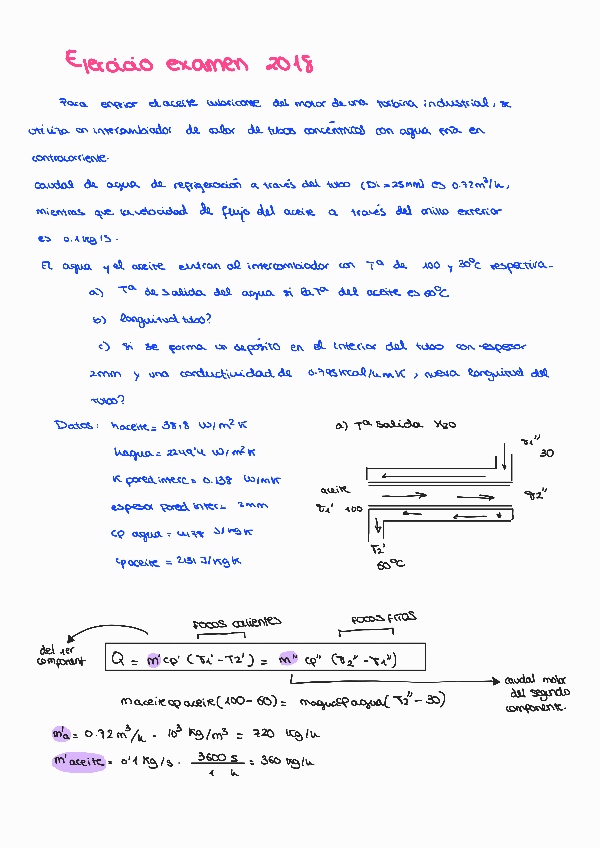 Ejercicio examen 2018
Para enfriar el aceite lubricante del motor de una turbina industrial, se
utiliza un intercambiador de calor de tubos concéntricos con agua fría en
contracorriente.
caudal de agua de refrigeración a través del tubo (Di=25mm) es 0.72m³/h,
mientras que la velocidad de flujo del aceite a través del anillo exterior
es 0.1 kg/s.
El agua y el aceite entran al intercambiador con Tª de 100 y 30ºC respectiva-
a) Tª de salida del agua si la Tª del aceite es 60ºC
b) longitud tubo?
c) si se forma un depósito en el interior del tubo con espesor
2mm y una conductividad de 0.795kcal/hmK, nueva longitud del
tubo?
Datos: haceite = 38,8 W/m²K
hagua = 2249'4 W/m²K
K pared interc = 0.138 W/mK
espesor pared inter = 2mm
cp agua = 4178 J/kgK
cpaceite = 2131 J/kgK
a) Tª salida H2O
T1'' 30
aceite
T1' 100
T2''
T2'
60ºC
focos calientes
focos fríos
del 1er component
Q = m'cp' (T1'-T2') = m'' cp'' (T2''-T1'')
caudal molar del segundo componente.
maceite cpaceite (100-60) = magua cpagua (T2''-30)
m'a = 0.72 m³/h · 10³ kg/m³ = 720 kg/h
m'aceite = 0'1 kg/s · 3600 s / 1 h = 360 kg/h